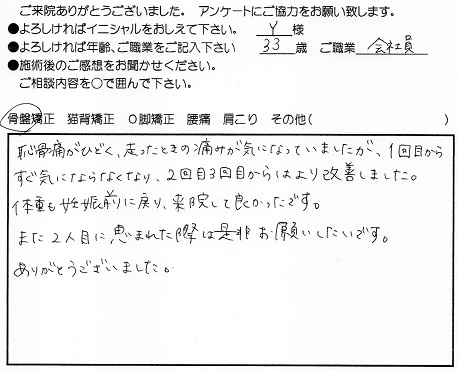 ご来院ありがとうございました。 アンケートにご協力をお願い致します。
●よろしければイニシャルをおしえて下さい。 Y 様
●よろしければ年齢、ご職業をご記入下さい 33 歳 ご職業 会社員
●施術後のご感想をお聞かせください。
ご相談内容を○で囲んで下さい。
骨盤矯正 猫背矯正 O脚矯正 腰痛 肩こり その他( )
恥骨痛がひどく、走ったときの痛みが気になっていましたが、1回目から
すぐ気にならなくなり、2回目3回目からはより改善しました。
体重も妊娠前に戻り、来院して良かったです。
また2人目に恵まれた際は是非お願いしたいです。
ありがとうございました。